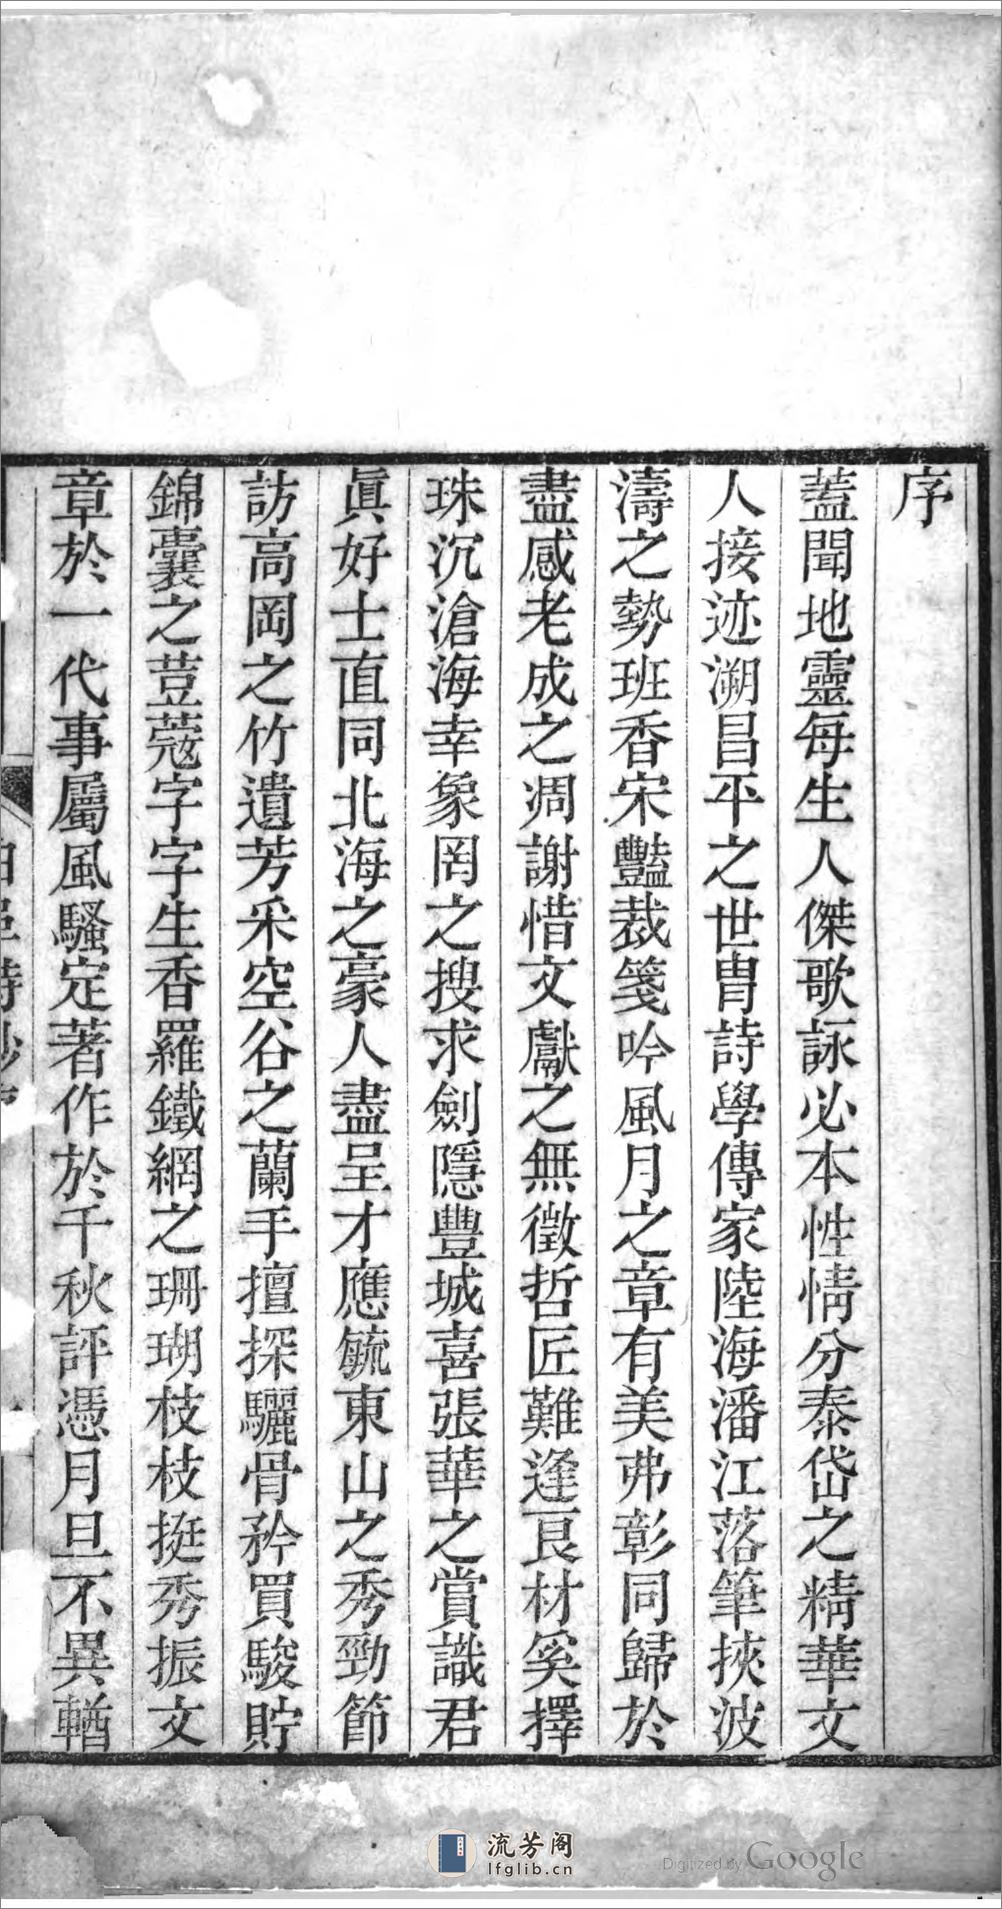 序
蓋聞地靈每生人傑歌詠必本性情分泰岱之精華文
人接迹溯昌平之世胄詩學傳家陸海潘江落筆挾波
濤之勢班香宋豔裁箋吟風月之章有美弗彰同歸於
盡感老成之凋謝惜文獻之無徵哲匠難逢良材奚擇
珠沉滄海幸象罔之搜求劍隱豐城喜張華之賞識君
眞好士直同北海之豪人盡呈才應毓東山之秀勁節
訪高岡之竹遺芳采空谷之蘭手擅探驪骨矜買駿貯
錦囊之荳蔻字字生香羅鐵網之珊瑚枝枝挺秀振文
章於一代事屬風騷定著作於千秋評憑月旦不異輶
流芳阁
lfglib.cn
Digitized by Google